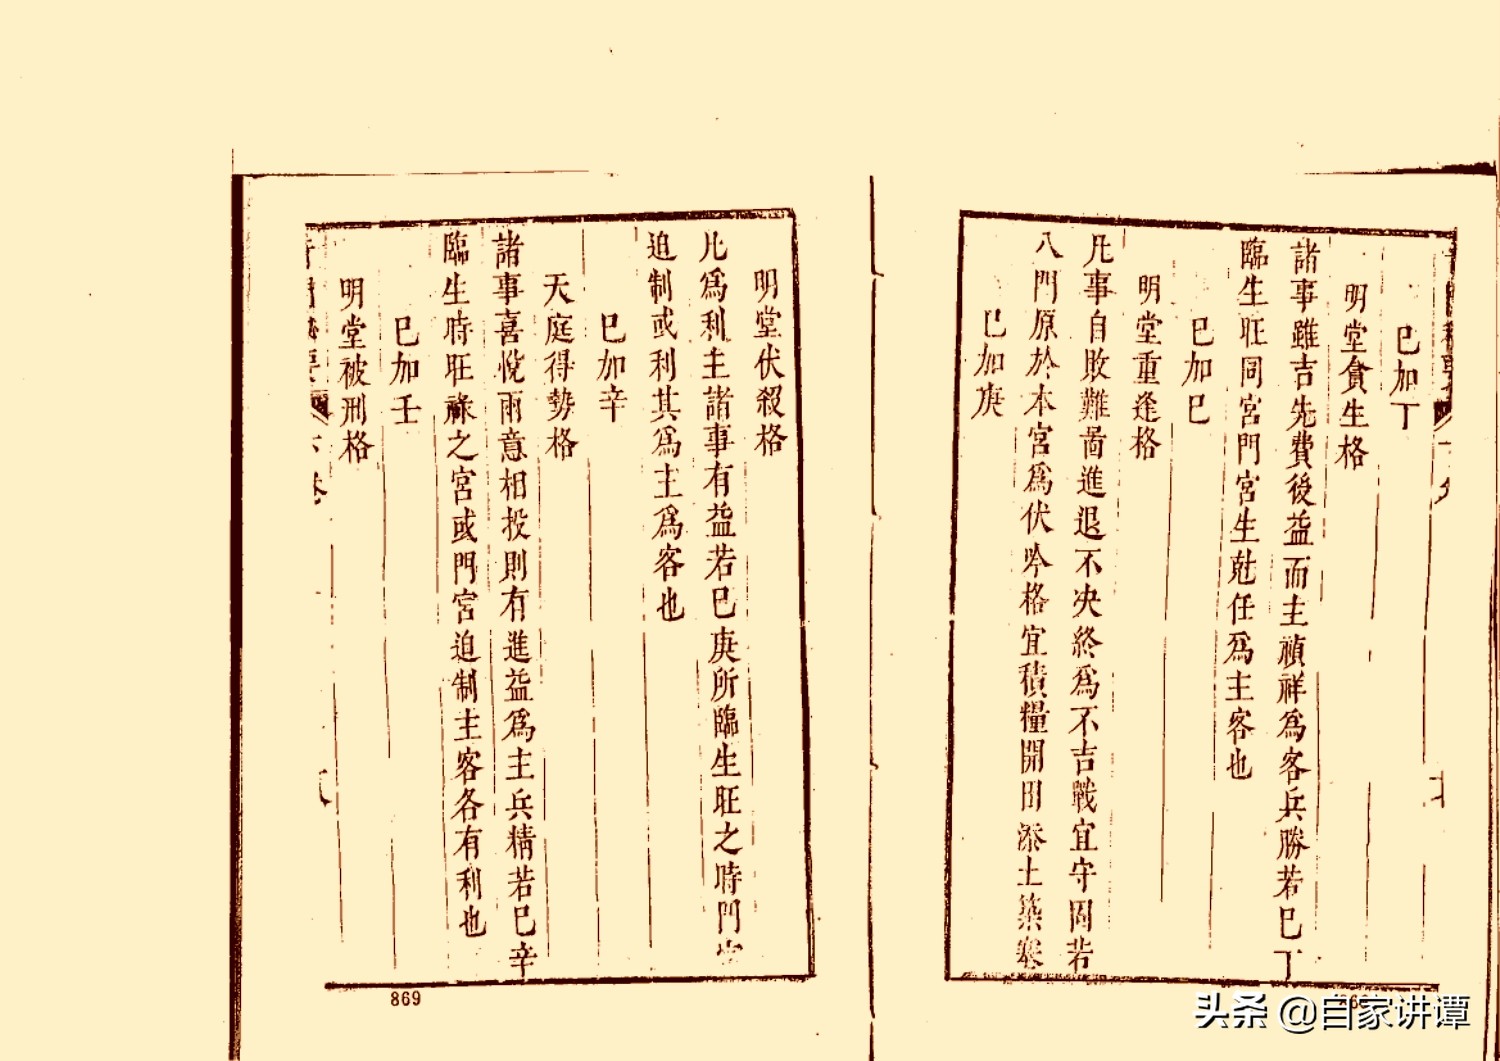 巳加丁
明堂貪生格
諸事雖吉先費後益而主禎祥爲客兵勝若巳丁
臨生旺同宮門宮生尅任爲主客也
巳加巳
明堂重逢格
凡事自敗難啚進退不决終爲不吉戰宜守固若
八門原於本宮爲伏吟格宜積糧開田添土築寨
巳加庚
明堂伏殺格
凡爲利主諸事有益若巳庚所臨生旺之時門宮
迫制或利其爲主爲客也
巳加辛
天庭得勢格
諸事喜悅兩意相投則有進益爲主兵精若巳辛
臨生時旺祿之宮或門宮迫制主客各有利也
巳加壬
明堂被刑格
869
头条 @自家讲谭